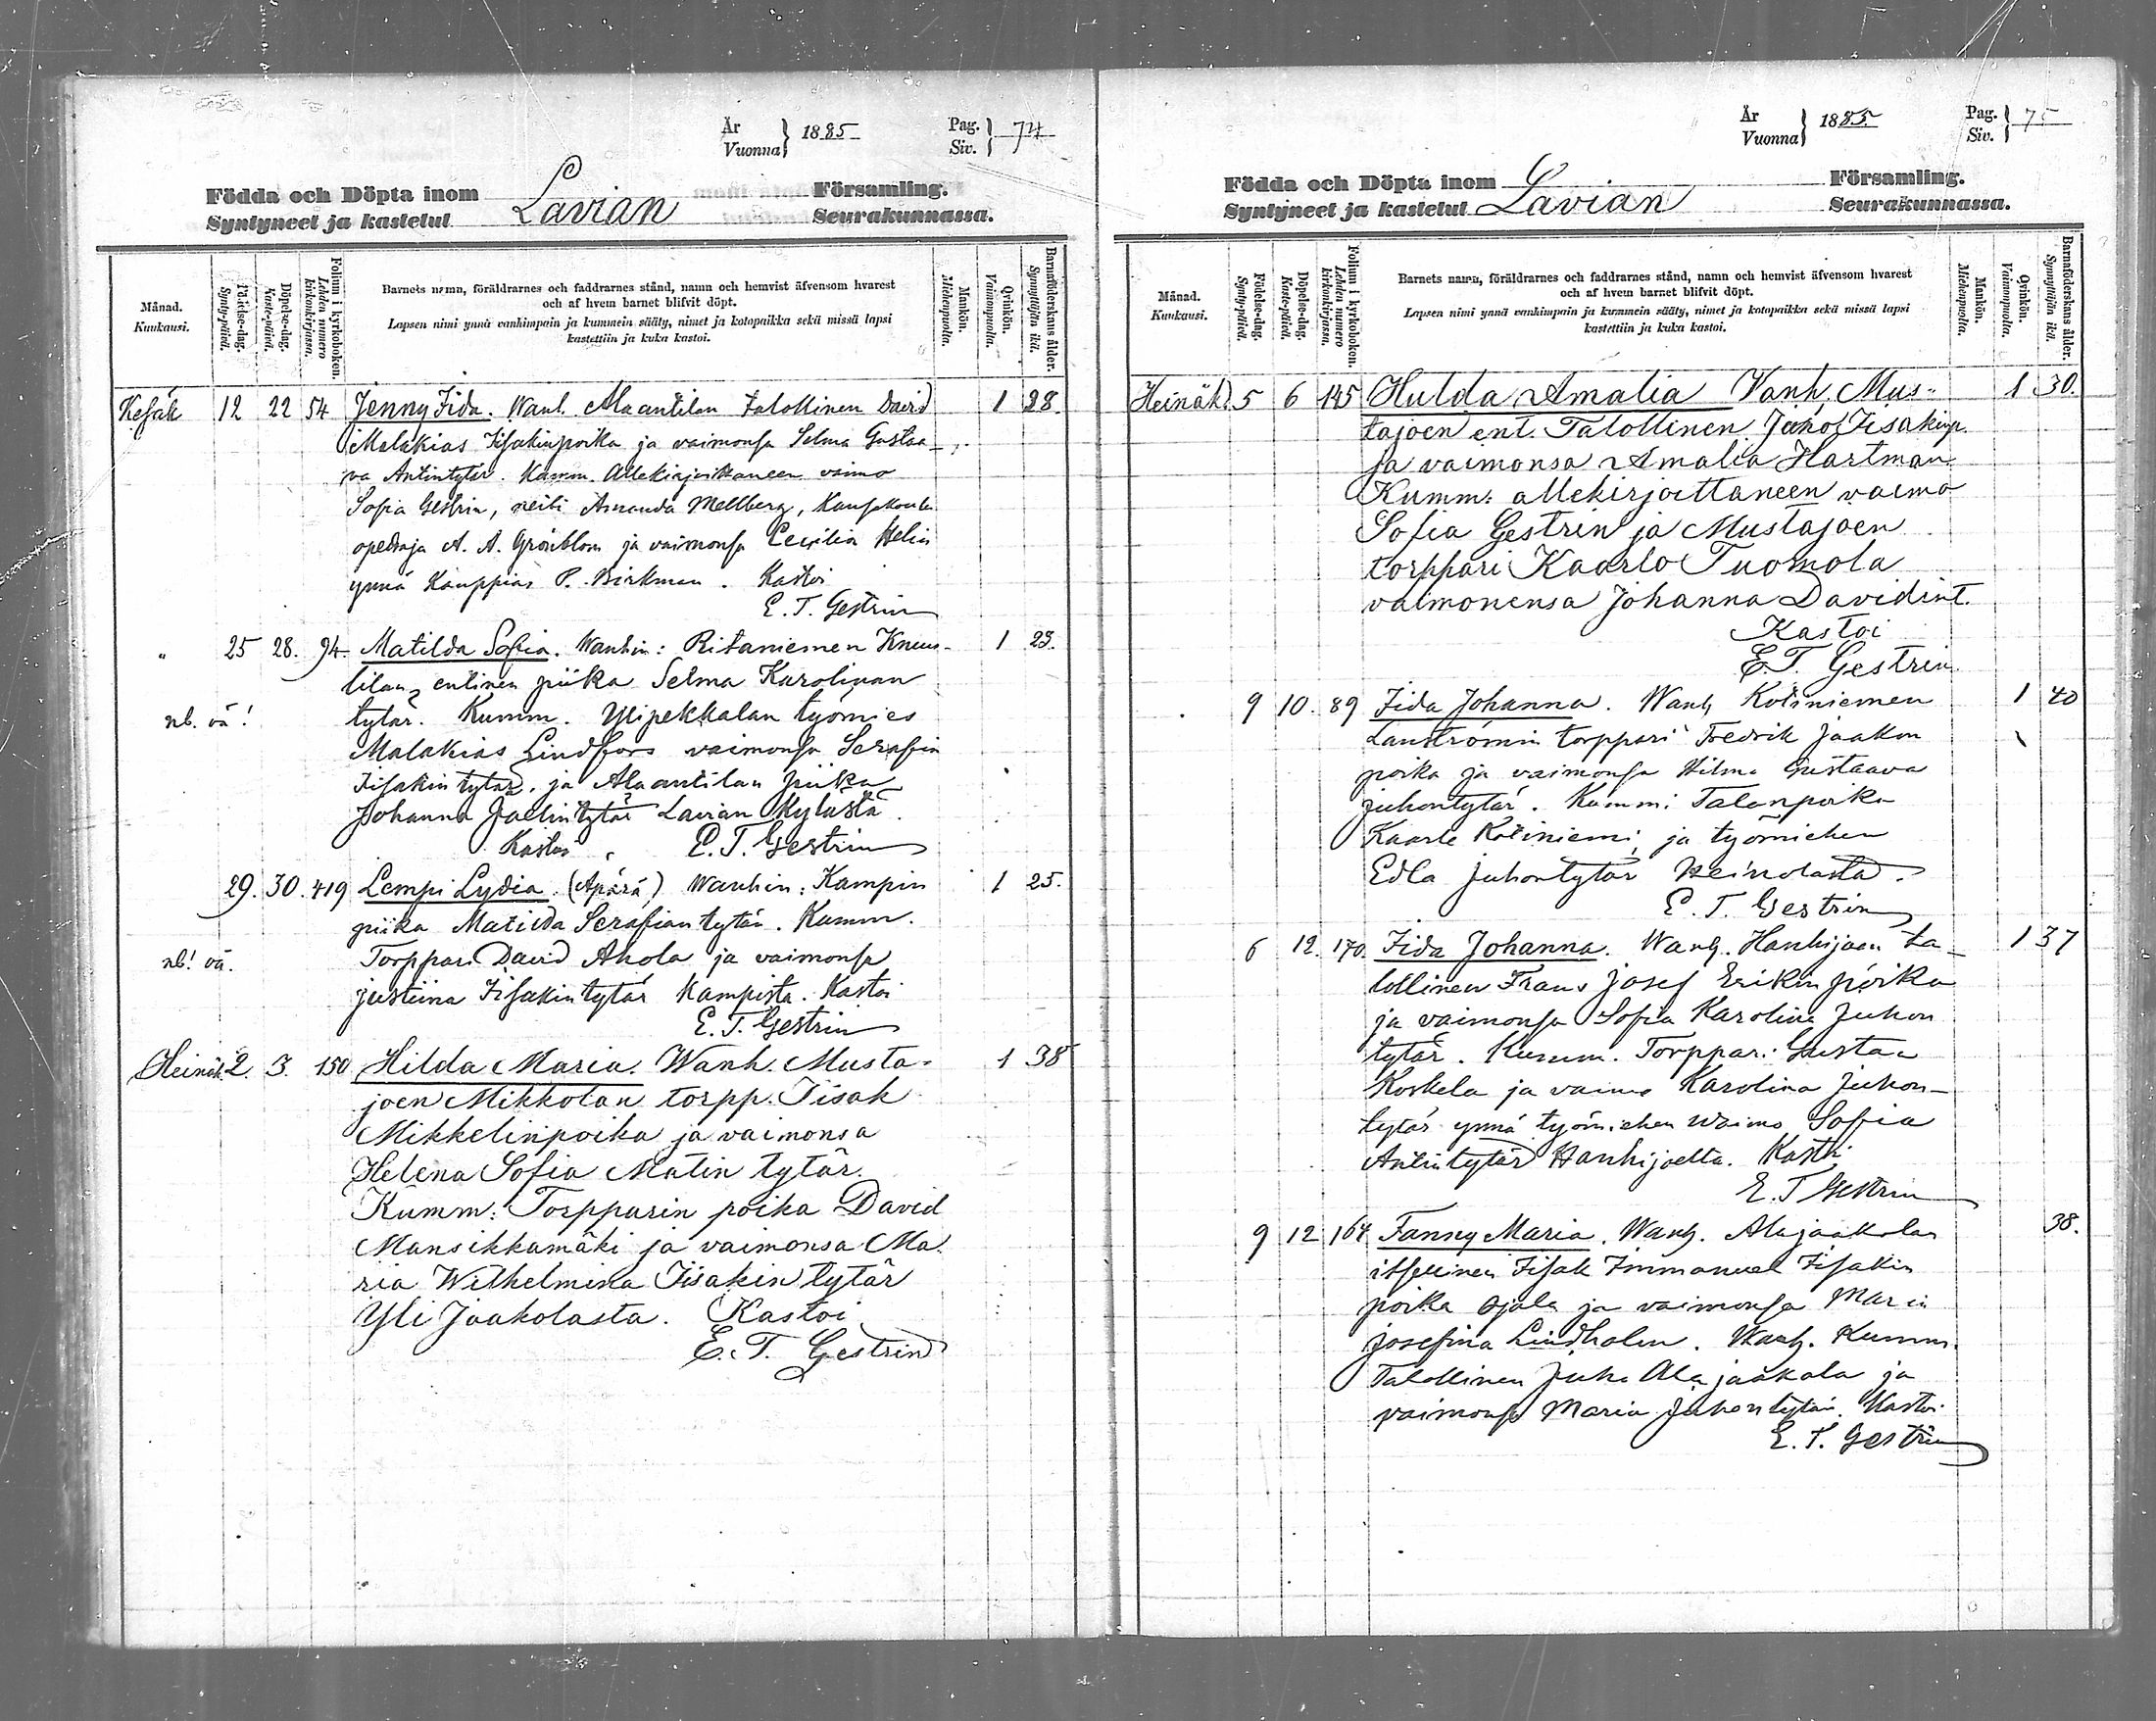 År
Vuonna } 1885
Pag.
Siv. } 74
Födda och Döpta inom Lavian Församling.
Syntyneet ja kastetut Seurakunnassa.
Månad.
Kuukausi.
Födelse-dag.
Synty-päivä.
Döpelse-dag.
Kaste-päivä.
Folium i kyrkoboken.
Lehden numero
kirkonkirjassa.
Barnets namn, föräldrarnes och faddrarnes stånd, namn och hemvist äfvensom hvarest
och af hvem barnet blifvit döpt.
Lapsen nimi ynnä vanhimpain ja kummein sääty, nimet ja kotopaikka sekä missä lapsi
kastettiin ja kuka kastoi.
Mankön.
Miehenpuolta.
Qvinkön.
Vaimonpuolta.
Barnaföderskans ålder.
Synnyttäjän ikä.
Kesäk 12 22 54 Jenny Iida. Wanh. Alaantilan talollinen David 1 28.
Malakias Iisakinpoika ja vaimonsa Selma Gustaa-
va Antintytär. Kumm. Allekirjoittaneen vaimo
Sofia Gestrin, neiti Amanda Mellberg, Kansakoulu
opettaja A. A. Grönblom ja vaimonsa Cecilia Helin
ynnä Kauppias P. Birkman. Kastoi
E. T. Gestrin
" 25 28. 94. Matilda Sofia. Wanhin: Ritaniemen Knuu- 1 23.
tilan entinen piika Selma Karolinan
nb. vä! tytär. Kumm. Ylipekkalan työmies
Malakias Lindfors vaimonsa Serafin
Iisakintytär, ja Alaantilan piika
Johanna tytär Lavian Kylästä.
Kastoi E. T. Gestrin
29. 30. 419 Lempi Lydia. (Äpärä) Wanhin: Kampin 1 25.
piika Matilda Serafiantytär. Kumm.
nb! vä. Torppari David Ahola ja vaimonsa
Justiina Iisakintytär Kampista. Kastoi
E. T. Gestrin
Heinäk. 2. 3. 150 Hilda Maria. Wanh. Musta- 1 38
joen Mikkolan torpp. Iisak
Mikkelinpoika ja vaimonsa
Helena Sofia Matin tytär.
Kumm: Torpparin poika David
Mansikkamäki ja vaimonsa Ma-
ria Wilhelmina Iisakin tytär
Yli Jaakolasta. Kastoi
E. T. Gestrin
År
Vuonna } 1885
Pag.
Siv. } 75
Födda och Döpta inom Lavian Församling.
Syntyneet ja kastetut Seurakunnassa.
Månad.
Kuukausi.
Födelse-dag.
Synty-päivä.
Döpelse-dag.
Kaste-päivä.
Folium i kyrkoboken.
Lehden numero
kirkonkirjassa.
Barnets namn, föräldrarnes och faddrarnes stånd, namn och hemvist äfvensom hvarest
och af hvem barnet blifvit döpt.
Lapsen nimi ynnä vanhimpain ja kummein sääty, nimet ja kotopaikka sekä missä lapsi
kastettiin ja kuka kastoi.
Mankön.
Miehenpuolta.
Qvinkön.
Vaimonpuolta.
Barnaföderskans ålder.
Synnyttäjän ikä.
Heinäk. 5 6 145 Hulda Amalia Vanh. Mus- 1 30.
tajoen ent. Talollinen Juho Iisakinp.
ja vaimonsa Amalia Hartman.
Kumm: allekirjoittaneen vaimo
Sofia Gestrin ja Mustajoen
torppari Kaarlo Tuomola
vaimonensa Johanna Davidint.
Kastoi
E. T. Gestrin
9 10. 89 Iida Johanna. Wanh. Kotiniemen 1 40
Lanströmin torppari Fredrik Jaakon
poika ja vaimonsa Hilma Gustaava
Juhontytär. Kummi Talonpoika
Kaarle Kotiniemi, ja työmiehen
Edla Juhontytär Heinolasta.
E. T. Gestrin
6 12. 170. Iida Johanna. Wanh. Hanhijoen ta- 1 37
lollinen Frans Josef Erikin poika
ja vaimonsa Sofia Karolina Juhon
tytär. Kumm. Torppari Gustaa
Koskela ja vaimo Karolina Juhon-
tytär ynnä työmiehen waimo Sofia
Antintytär Hanhijoelta. Kastoi
E. T Gestrin
9 12 164 Fanny Maria. Wanh. Alajaakolan 38.
itsellinen Iisak Immanuel Iisakin
poika Ojala ja vaimonsa Maria
Josefina Lindholm. Wanh. Kumm.
Talollinen Juho Alajaakola ja
vaimonsa Maria Juhontytär. Kastoi
E. T. Gestrin